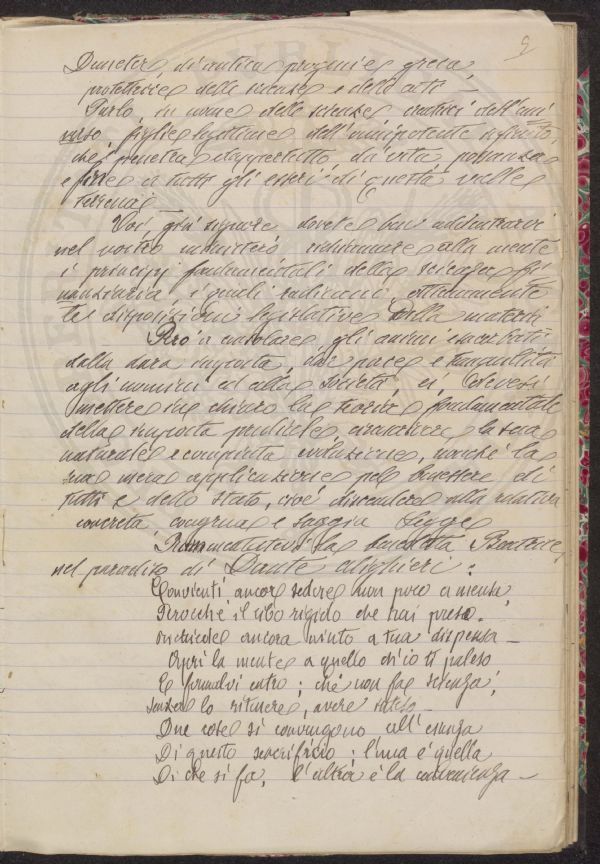 9
Demeter, di antica progenie greca,
protettrice delle scienze e delle arti —
Parlo, in nome delle scienze, dell'uni
verso, figlie legittime dell'onnipotente infinito,
che penetra dappertutto, dà vita, possanza
e fine a tutti gli esseri di questa valle
terrena.
Voi, già signore dovete ben addentrarvi
nel vostro ministero alla mente
i principj fondamentali della scienza fi
nanziaria, i quali
le disposizioni legislative sulla materia.
Pero a consolare gli animi esacerbati
dalla dura imposta, dar pace e tranquillità
agli uomini ed alla società, ci devesi
mettere in chiaro la teoria fondamentale
della imposta prediale, la sua
naturale e compiuta evoluzione, nonchè la
sua vera applicazione pel benessere di
tutti e dello Stato, cioè discendere alla relativa
concreta congrua e saggia Legge
Rammentatevi la Beatrice,
nel paradiso di Dante Alighieri:
Convienti ancor sedere un poco a mensa,
Perocchè il cibo rigido che hai preso.
richiede ancora aiuto a tua dispensa —
Apri la mente a quello ch'io ti paleso
E fermalvi entro; chè non fa scienza,
senza lo ritenere, avere inteso —
Due cose si convengono all'essenza
Di questo sacrificio; l'una è quella
Di che si fa, l'altra è la convenienza —